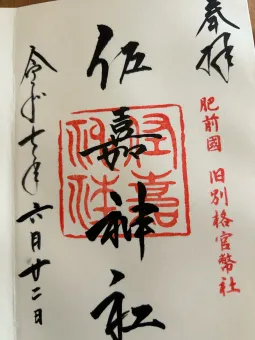 奉拝
肥前國 旧別格官幣社
佐嘉神社
令和七年六月廿二日